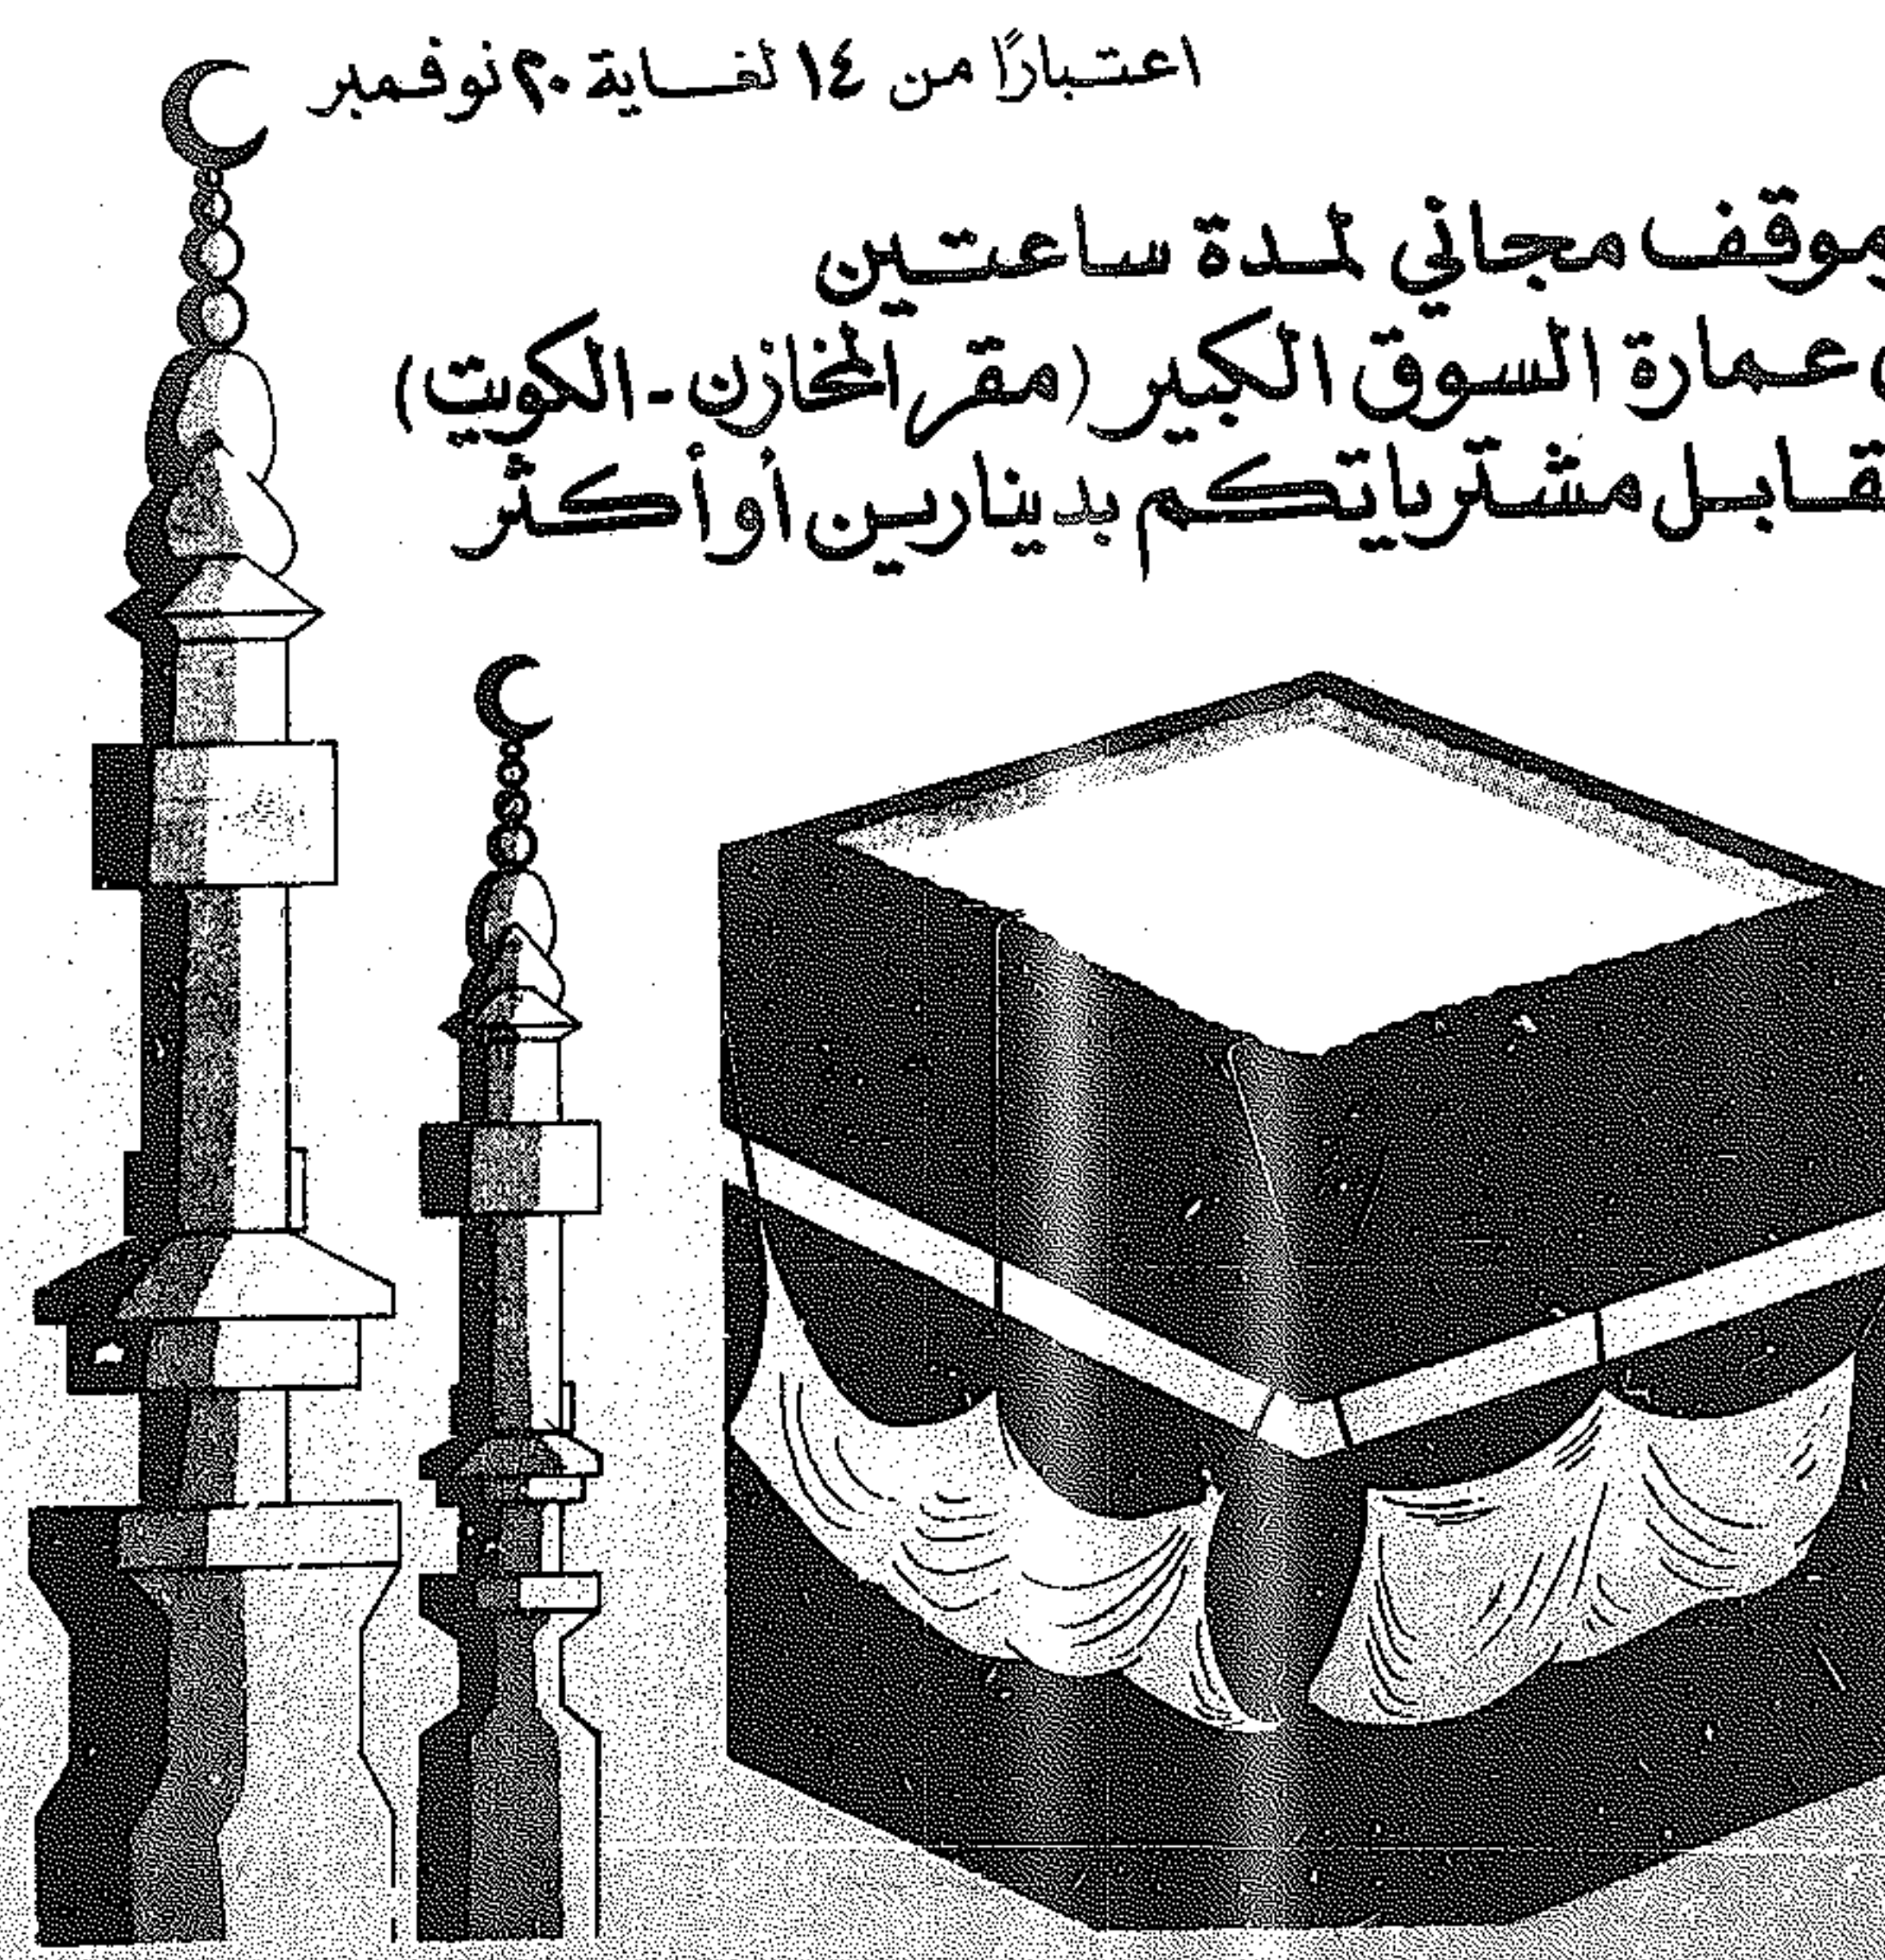 اعتبارًا من ١٤ لغاية ٢٠ نوفمبر
موقف مجاني لمدة ساعتين
عمارة السوق الكبير (مقر المخازن - الكويت)
مشترياتكم بدينارين أو أكثر